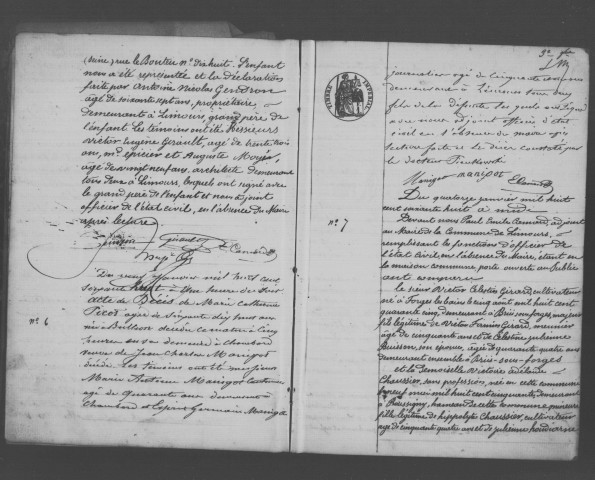 (Seine) rue le Bouteux n° dix huit. L'enfant
nous a été représenté et la déclaration
faite par Antoine Nicolas Gendron
âgé de soixante sept ans, propriétaire,
demeurant à Limours, grand père de
l'enfant. Les témoins ont été Messieurs
Victor Eugène Girault, âgé de trente trois
ans, md épicier et Auguste
âgé de vingt neuf ans, architecte demeurant
tous deux à Limours, lesquels ont signé avec
le grand père de l'enfant et nous adjoint
officier de l'état civil, en l'absence du Maire
après lecture
n° 6
Du neuf Janvier mil huit cent
soixante huit à une heure de
acte de Décès de Marie Catherine
âgée de soixante dix huit ans
née à Bullion décédée ce matin à cinq
heures en sa demeure à Chaumusson
veuve de Jean Charles Marigot
décédé. Les témoins ont été
Marie Antoine Marigot
âgé de quarante ans demeurant à
et Germain Marigot
journalier âgé de cinquante
demeurant à Limours tous deux
fils de la défunte, lesquels ont signé
avec nous adjoint officier d'état
civil en l'absence du maire après
lecture faite et le décès constaté par
le docteur
Marigot marigot
TIMBRE IMPERIAL
n° 7
Du quatorze janvier mil huit
cent soixante huit à midi
Devant nous Paul Emile adjoint
au Maire de la Commune de Limours,
remplissant les fonctions d'officier de
l'état civil, en l'absence du Maire, étant en
la maison commune porte ouverte au public
ont comparu
Le sieur Victor Célestin Girard, cultivateur
né à Forges les bains le cinq août mil huit cent
quarante cinq, demeurant à Briis sous forges, majeur
fils légitime de Victor Firmin Girard, meunier
âgé de cinquante ans et de Célestine Julienne
Buisson, son épouse âgée de quarante quatre ans
demeurant ensemble à Briis-sous-forges
et la Demoiselle Victoire Adélaïde
Chaussier, sans profession, née en cette commune
le neuf mai mil huit cent cinquante, demeurant
à Roussigny, hameau de cette commune mineure
fille légitime de hippolyte Chaussier, cultivateur
âgé de cinquante quatre ans et de Julienne